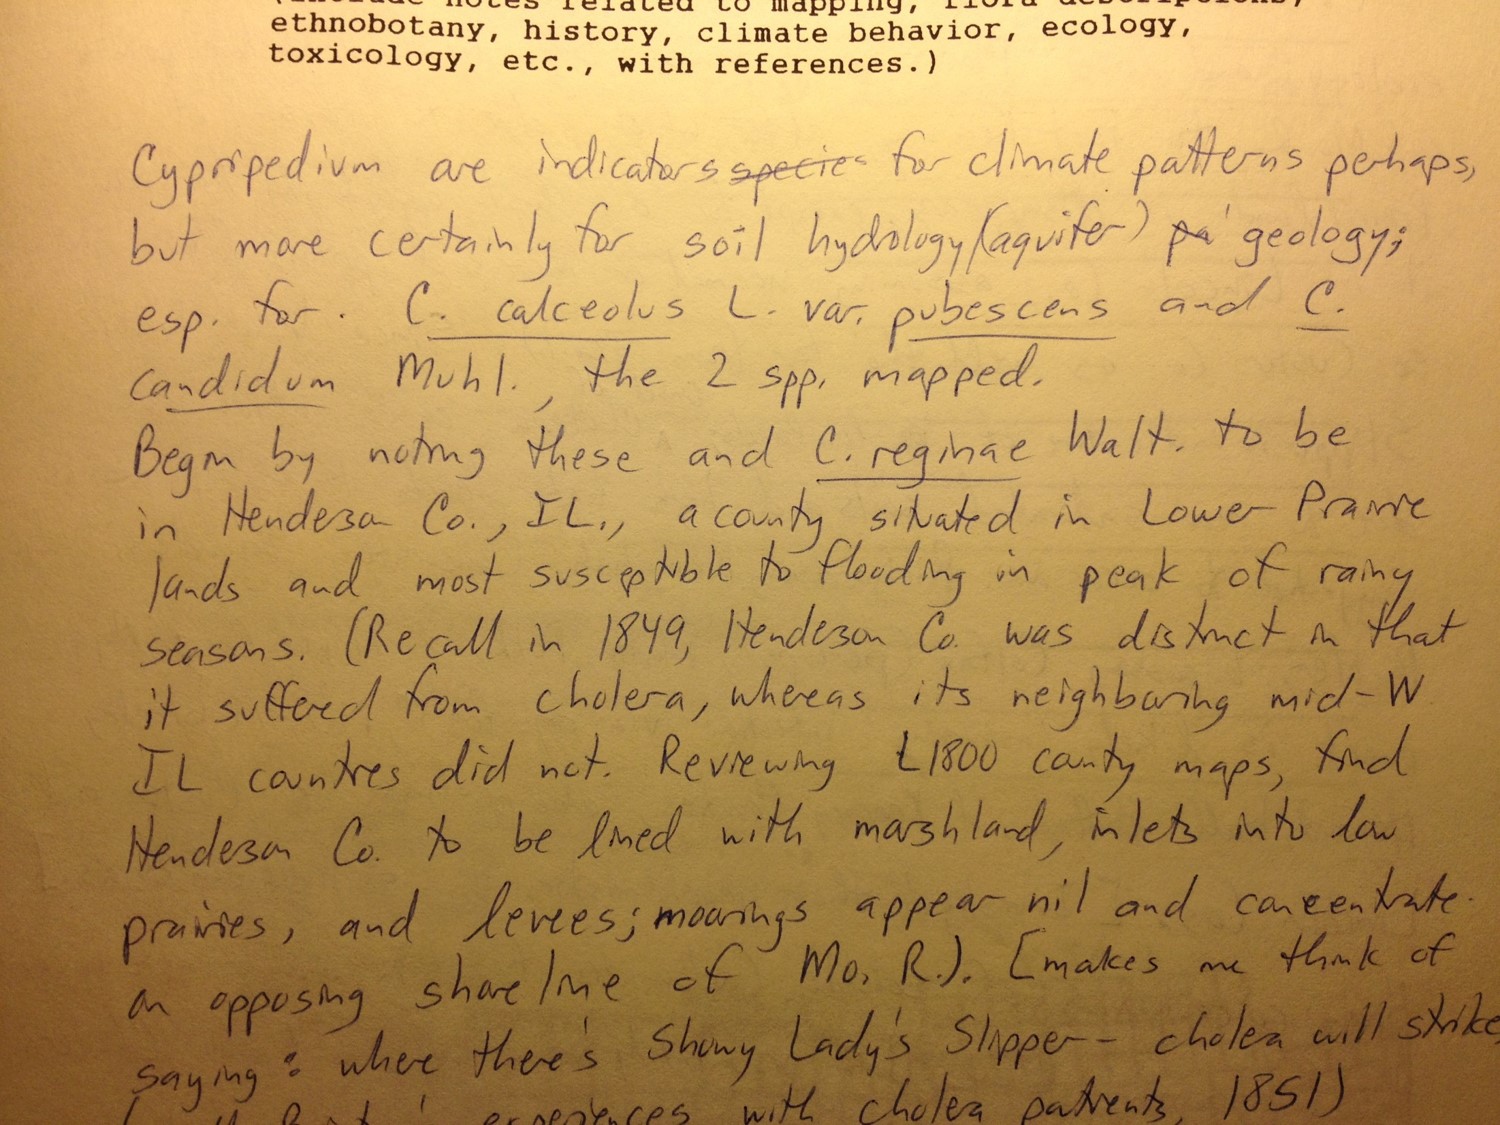 (include notes related to mapping, flora descriptions,
ethnobotany, history, climate behavior, ecology,
toxicology, etc., with references.)
Cypripedium are indicators specie for climate patterns perhaps,
but more certainly for soil hydrology (aquifer) pa' geology;
esp. for. C. calceolus L. var. pubescens and C.
candidum Muhl., the 2 spp. mapped.
Begin by noting these and C. reginae Walt. to be
in Henderson Co., IL., a county situated in Lower Prairie
lands and most susceptible to flooding in peak of rainy
seasons. (Recall in 1849, Henderson Co. was distinct in that
it suffered from cholera, whereas its neighboring mid-W
IL countres did not. Reviewing L1800 county maps, find
Henderson Co. to be lined with marshland, inlets into low
prairies, and levees; moorings appear nil and concentrate
on opposing shoreline of Mo. R.). [makes me think of
saying: where there's Showy Lady's Slipper-- cholera will strike
experiences with cholera patients, 1851)